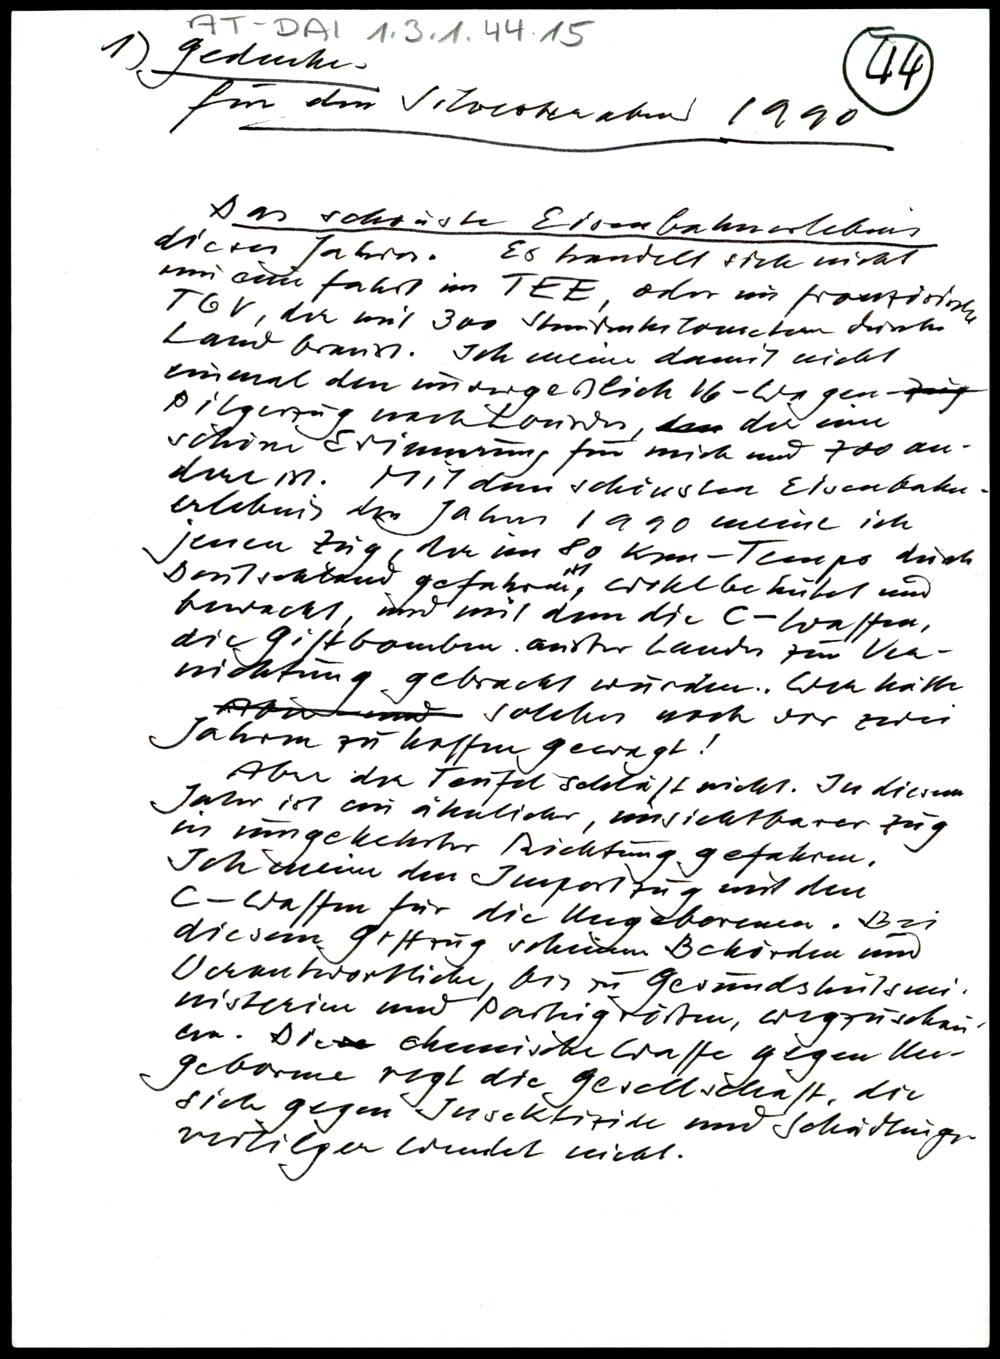 AT-DAI 1.3.1.44.15
44
1) Gedanken
für den Silvesterabend 1990
Das schönste Eisenbahnerlebnis
dieses Jahres. Es handelt sich nicht
um eine Fahrt im TEE, oder im französischen
TGV, der mit 300 Stundenkilometern durchs
Land braust. Ich meine damit nicht
einmal den unvergeßlich 16-Wagen-Zug
Pilgerzug nach Lourdes, der die eine
schöne Erinnerung für mich und 700 an-
dere ist. Mit dem schönsten Eisenbahn-
erlebnis des Jahres 1990 meine ich
jenen Zug, der im 80 Km-Tempo durch
Deutschland gefahren ist, wohlbehütet und
bewacht, und mit dem die C-Waffen,
die Giftbomben außer Landes zur Ver-
nichtung gebracht wurden. Wer hätte
solches noch vor zwei
Jahren zu hoffen gewagt!
Aber der Teufel schläft nicht. In diesem
Jahr ist ein ähnlicher, unsichtbarer Zug
in umgekehrter Richtung gefahren.
Ich meine den Importzug mit den
C-Waffen für die Ungeborenen. Bei
diesem Giftzug scheinen Behörden und
Verantwortliche, bis zu Gesundheitsmi-
nisterien und Parteigrößen, wegzuschau-
en. Diese chemische Waffe gegen Un-
geborene regt die Gesellschaft, die
sich gegen Insektizide und Schädlings-
vertilger wendet nicht.